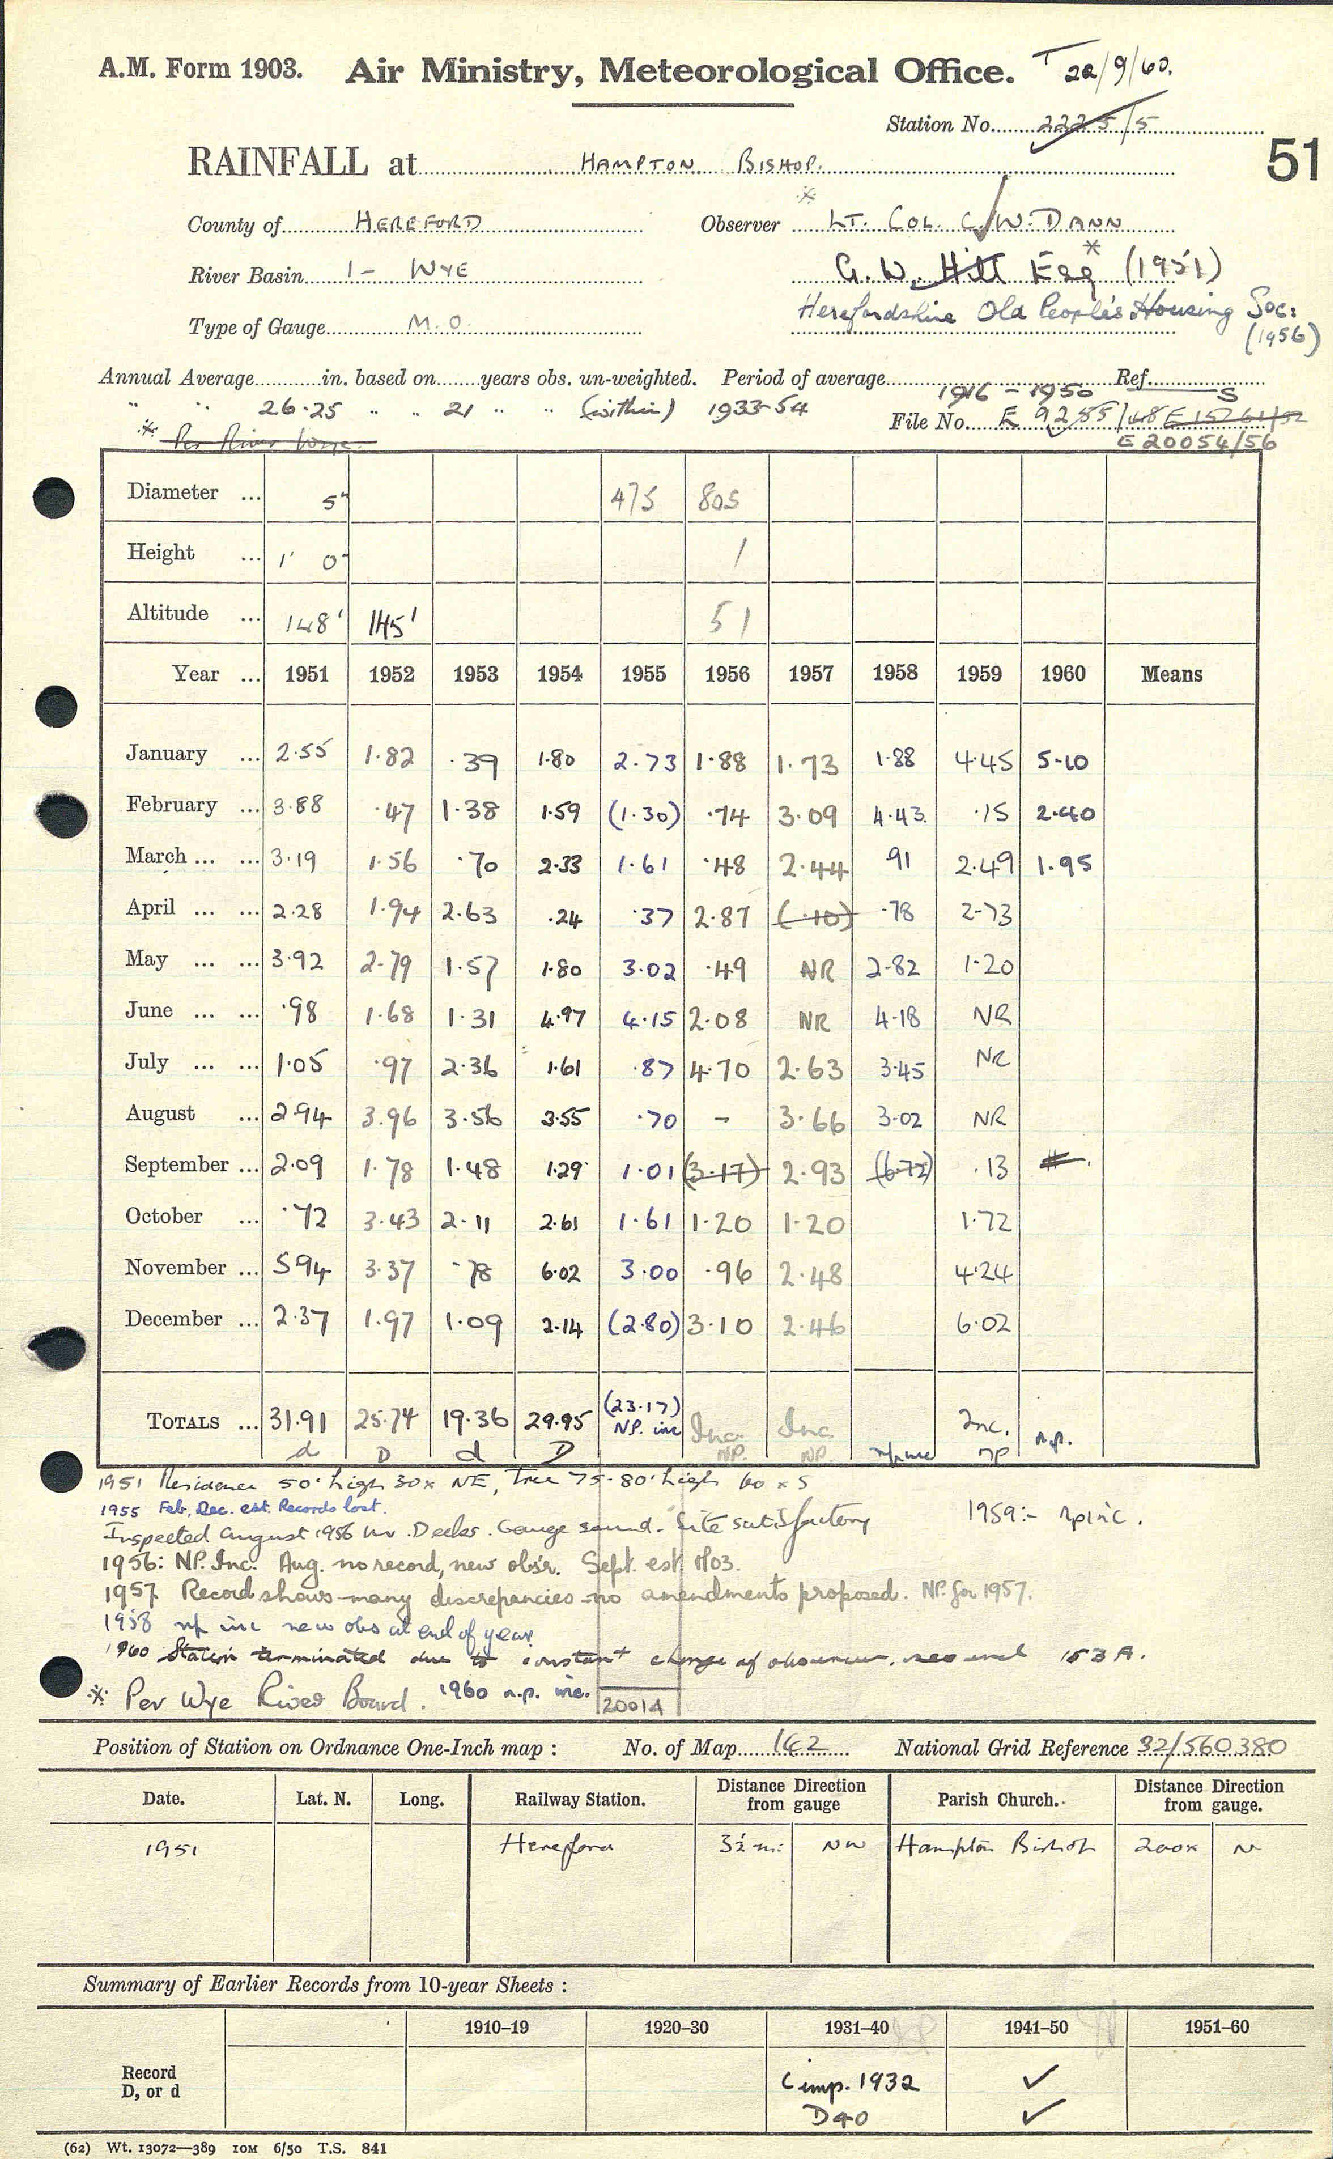 A.M. Form 1903. Air Ministry, Meteorological Office. T 22/9/60.
Station No. 2225/5
51
RAINFALL at HAMPTON BISHOP.
County of HEREFORD Observer * LT. COL. C. W. DANN
River Basin 1 - WYE G. W. Hill Esq * (1951)
Type of Gauge M.O. Herefordshire Old People's Housing Soc: (1956)
Annual Average in. based on years obs. un-weighted. Period of average 1916 - 1950 Ref. S
" " 26.25 " " 21 " " (within) 1933-54 File No. E 9255/48 E 15261/52
* Per River Wye E 20054/56
Diameter ... 5" 475 805
Height ... 1' 0" 1
Altitude ... 148' 145' 51
Year ... 1951 1952 1953 1954 1955 1956 1957 1958 1959 1960 Means
January ... 2.55 1.82 .39 1.80 2.73 1.88 1.73 1.88 4.45 5.10
February ... 3.88 .47 1.38 1.59 (1.30) .74 3.09 4.43 .15 2.40
March ... ... 3.19 1.56 .70 2.33 1.61 .48 2.44 .91 2.49 1.95
April ... ... 2.28 1.94 2.63 .24 .37 2.87 (.10) .78 2.73
May ... ... 3.92 2.79 1.57 1.80 3.02 .49 NR 2.82 1.20
June ... ... .98 1.68 1.31 4.97 4.15 2.08 NR 4.18 NR
July ... ... 1.05 .97 2.36 1.61 .87 4.70 2.63 3.45 NR
August ... 2.94 3.96 3.56 3.55 .70 - 3.66 3.02 NR
September ... 2.09 1.78 1.48 1.29 1.01 (3.17) 2.93 (6.72) .13
October ... .72 3.43 2.11 2.61 1.61 1.20 1.20 1.72
November ... 5.94 3.37 .78 6.02 3.00 .96 2.48 4.24
December ... 2.37 1.97 1.09 2.14 (2.80) 3.10 2.46 6.02
TOTALS ... 31.91 25.74 19.36 29.95 (23.17) NP. inc Inc. NP. Inc NP. np inc Inc. np n.p.
d D d D
1951 Residence 50' high 30x NE, tree 75-80' high 60 x S
1955 Feb, Dec. est. Records lost.
Inspected August 1956 Gauge sound. Site satisfactory 1959:- np inc.
1956: NP. Inc. Aug. no record, new obsr. Sept. est
1957. Record shows many discrepancies no amendments proposed. NP. for 1957.
1958 np inc new obs at end of year
1960 Station terminated due to constant change of observer, 153 A.
* Per Wye River Board. 1960 n.p. inc. 20014
Position of Station on Ordnance One-Inch map : No. of Map 142 National Grid Reference 32/560380
Date. Lat. N. Long. Railway Station. Distance from gauge Direction Parish Church. Distance from gauge. Direction
1951 Hereford 3½ m: NW Hampton Bishop 200x N
Summary of Earlier Records from 10-year Sheets :
1910–19 1920–30 1931–40 1941–50 1951–60
Record D, or d
Comp. 1932 ✓
D40 ✓
(62) Wt. 13072—389 10M 6/50 T.S. 841